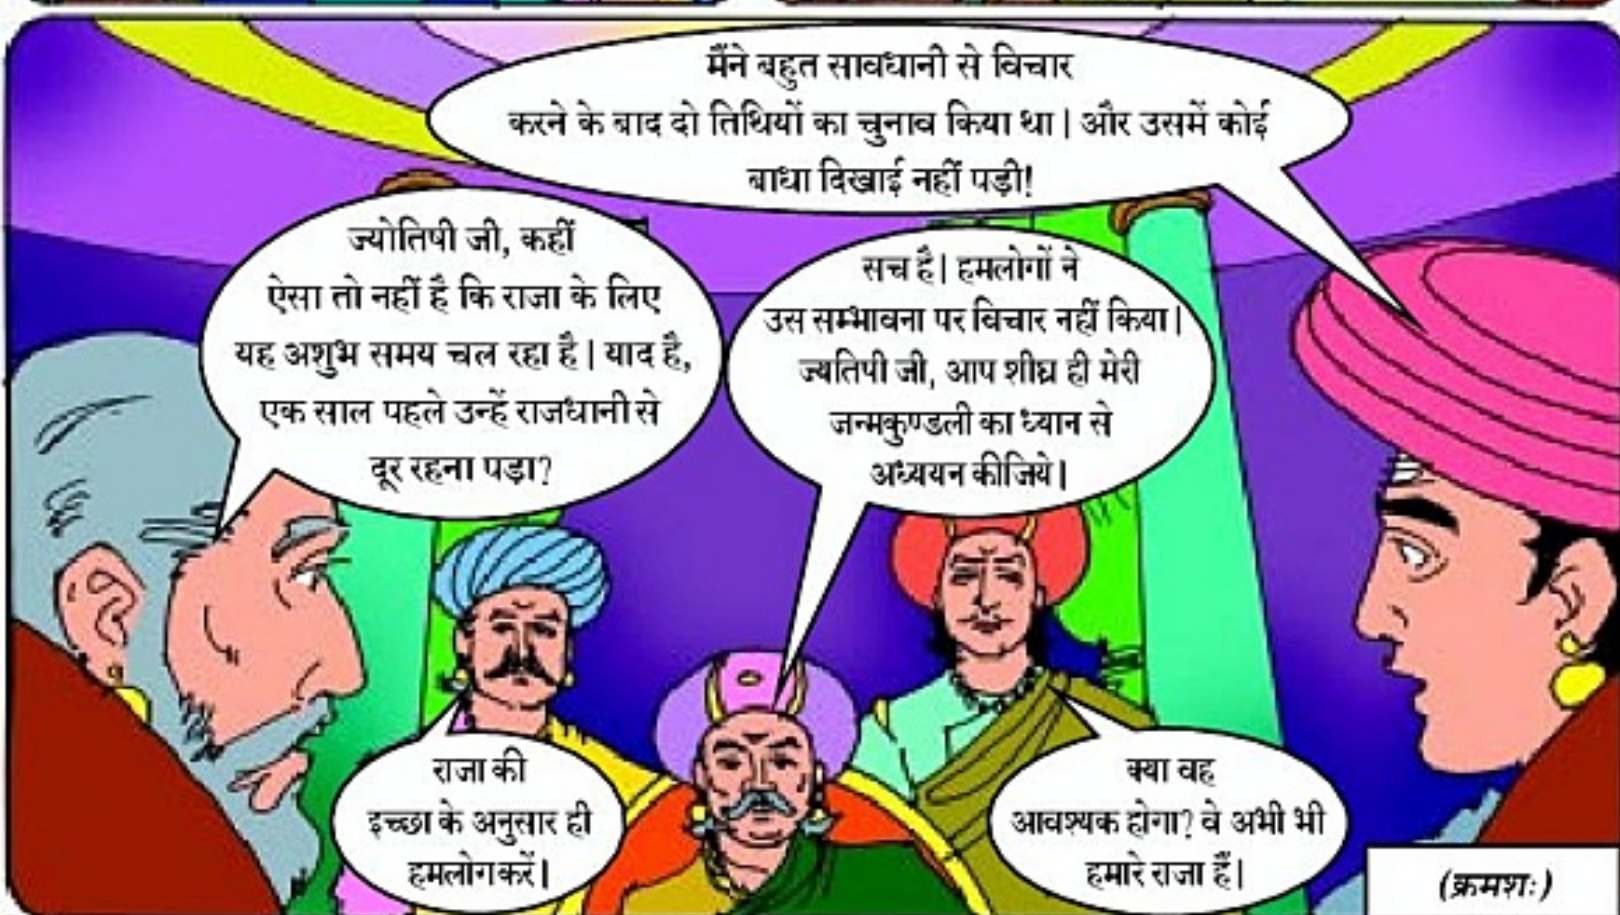 मैंने बहुत सावधानी से विचार
करने के बाद दो तिथियों का चुनाव किया था | और उसमें कोई
बाधा दिखाई नहीं पड़ी!
ज्योतिषी जी, कहीं
ऐसा तो नहीं है कि राजा के लिए
यह अशुभ समय चल रहा है | याद है,
एक साल पहले उन्हें राजधानी से
दूर रहना पड़ा?
सच है| हमलोगों ने
उस सम्भावना पर विचार नहीं किया|
ज्यतिषी जी, आप शीघ्र ही मेरी
जन्मकुण्डली का ध्यान से
अध्ययन कीजिये|
राजा की
इच्छा के अनुसार ही
हमलोग करें|
क्या वह
आवश्यक होगा? वे अभी भी
हमारे राजा हैं|
(क्रमशः)